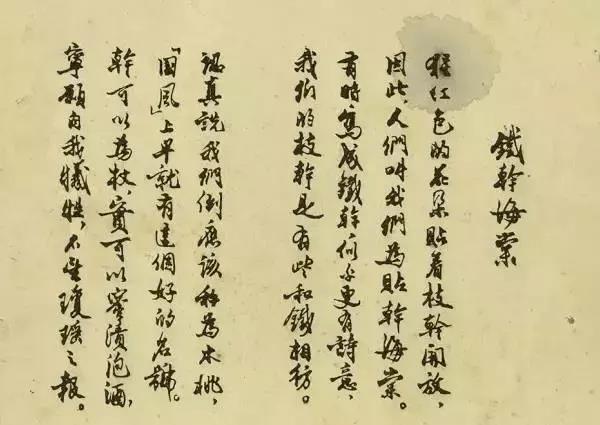 鐵幹海棠
猩紅色的花朵貼着枝幹開放，
因此，人們叫我們為貼幹海棠。
有時寫成鐵幹何尝更有詩意，
我们的枝幹是有些和鐵相彷。
認真說我們倒應該称為木桃，
「国風」上早就有這個好的名號。
幹可以為杖，實可以蜜漬泡酒，
寧願自我犧牲，不望瓊瑤之報。